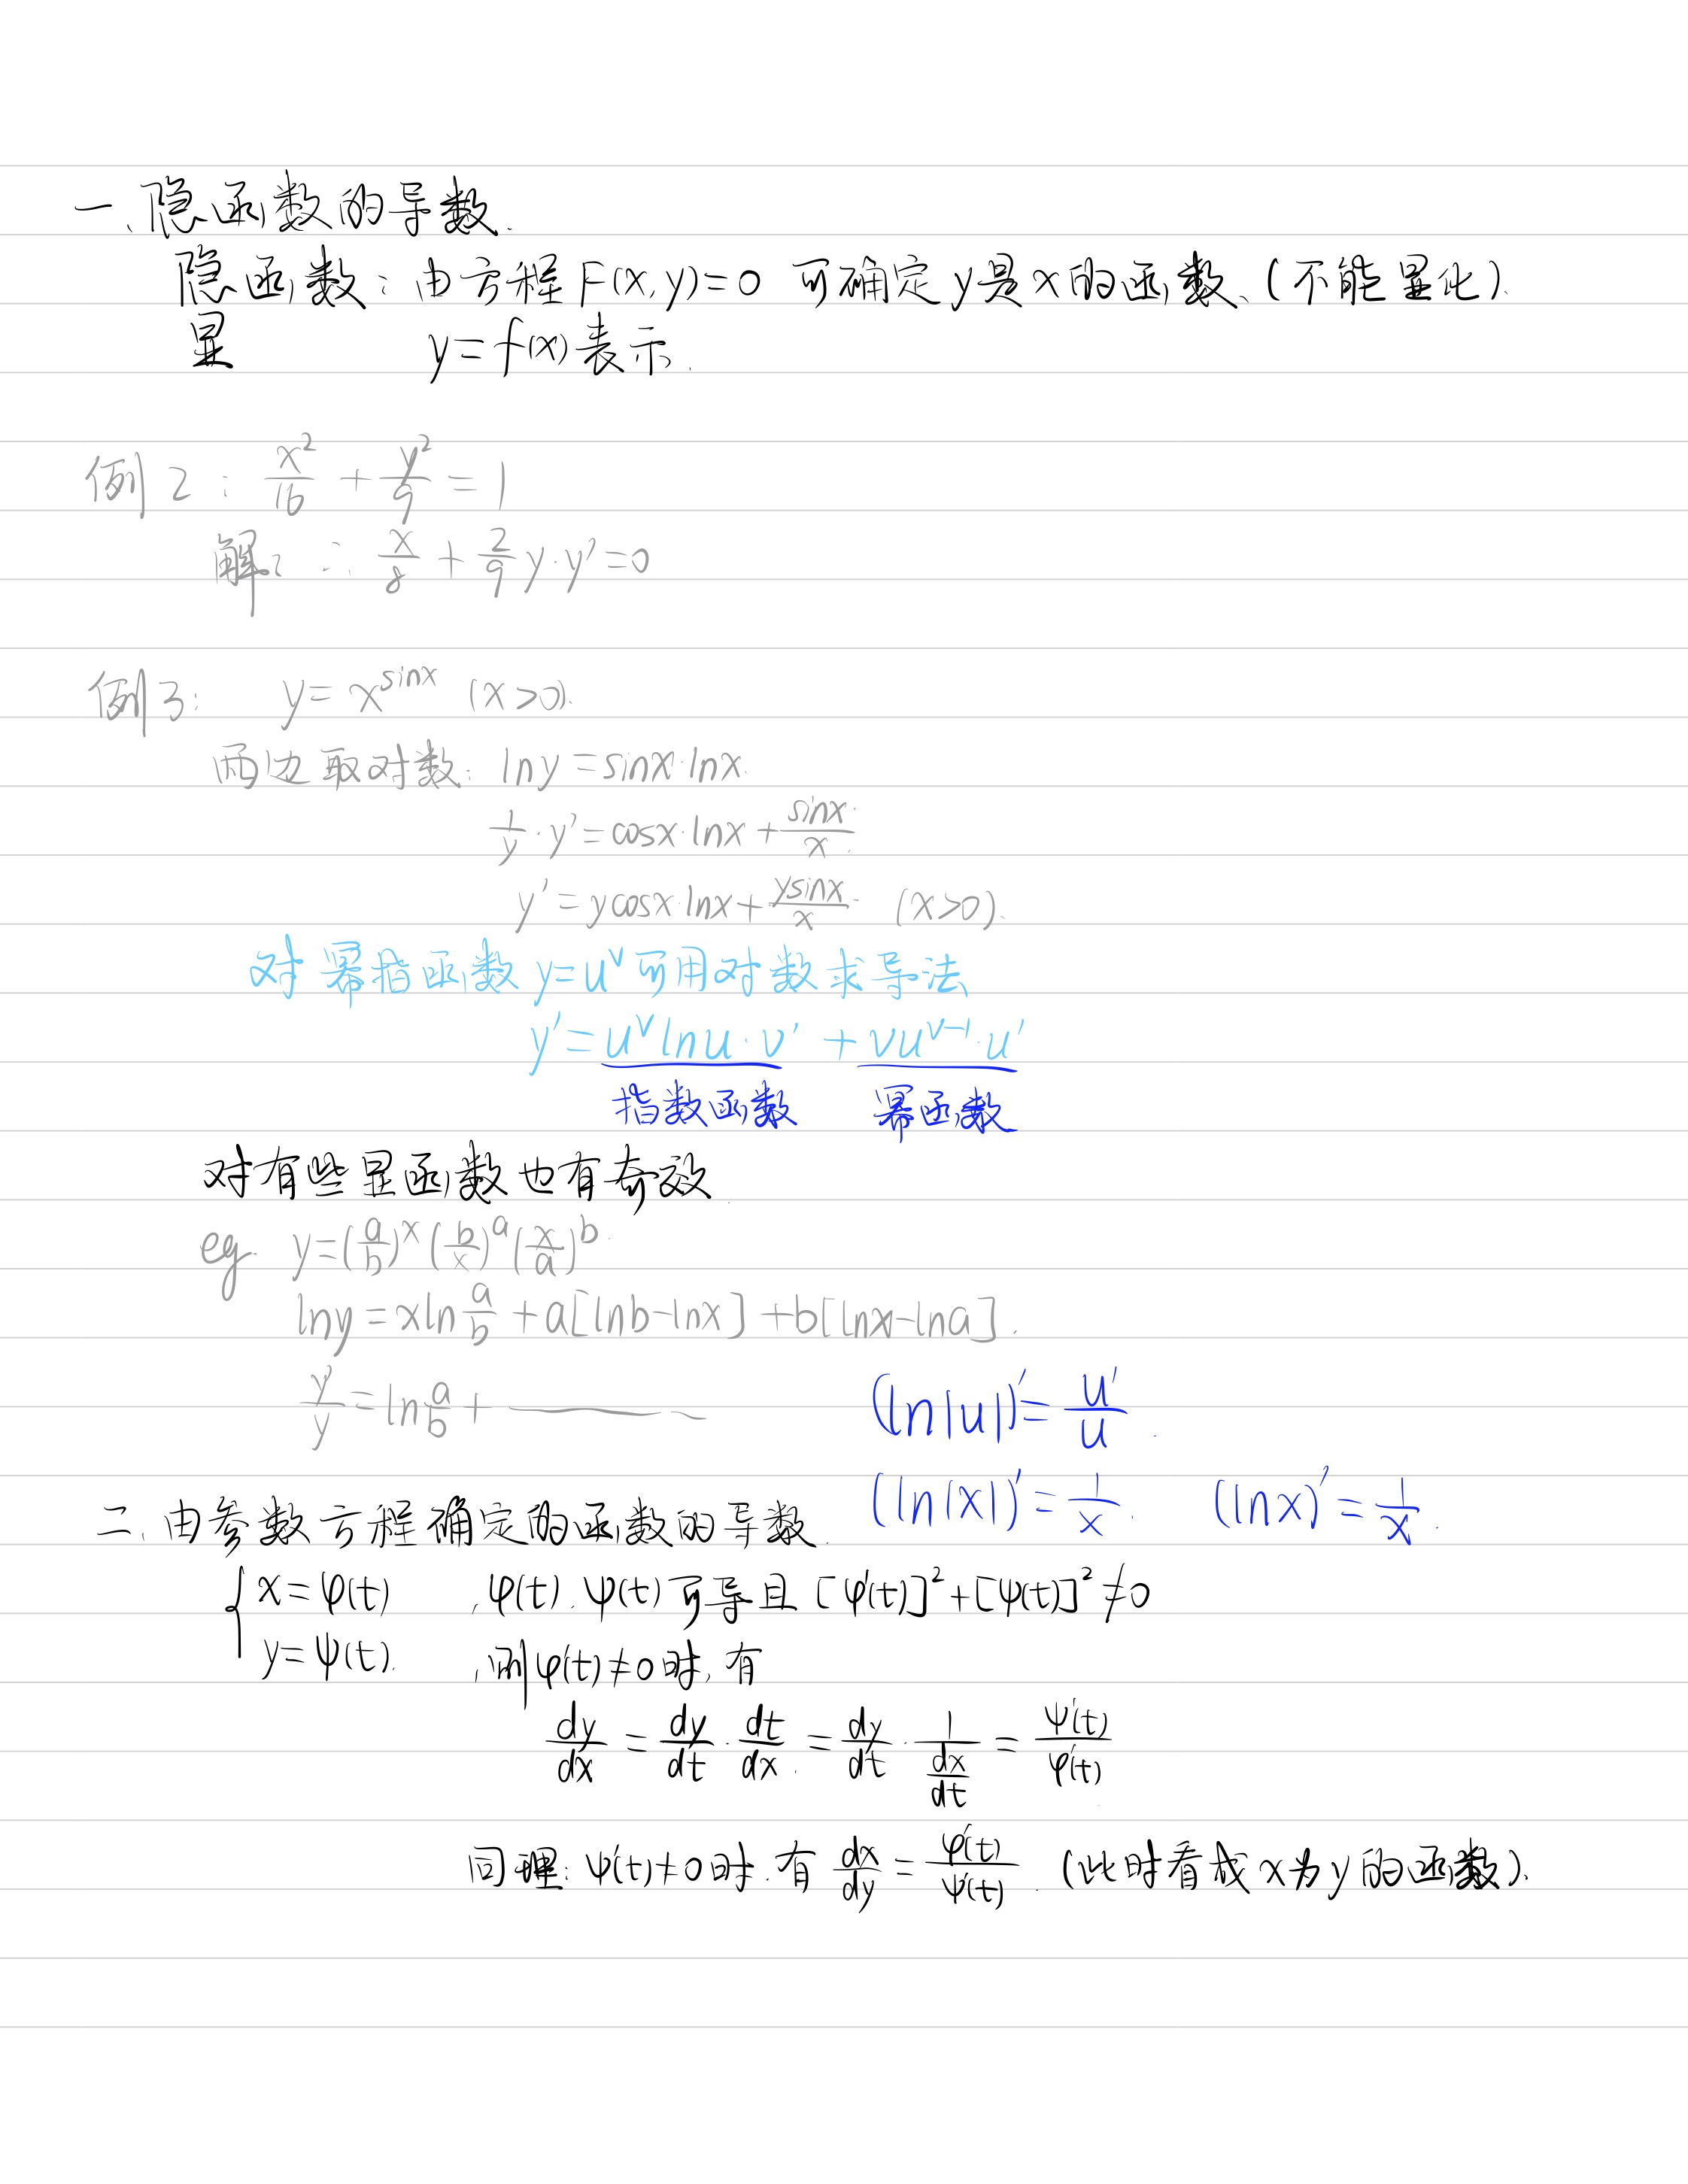 一、隐函数的导数.
隐函数：由方程 F(x,y)=0 可确定 y是x的函数、(不能显化).
显 y=f(x)表示.
例2： x²/16 + y²/9 = 1
解： ∴ x/8 + 2/9 y·y′=0
例3： y= x^sinx (x>0).
两边取对数：lny =sinx·lnx.
1/y · y′=cosx·lnx + sinx/x.
y′=ycosx·lnx+ ysinx/x. (x>0).
对幂指函数 y=u^v 可用对数求导法
y′=u^v lnu·v′ + vu^(v-1)·u′
指数函数 幂函数
对有些显函数也有奇效.
eg. y=(a/b)^x (b/x)^a (x/a)^b
lny=xln a/b +a[lnb-lnx]+b[lnx-lna].
y′/y =ln a/b + ——
(ln|u|)′= u′/u.
(ln|x|)′= 1/x. (lnx)′= 1/x.
二、由参数方程确定的函数的导数.
{ x=φ(t) ,φ(t).ψ(t)可导且[φ′(t)]²+[ψ′(t)]²≠0
y=ψ(t). ,则φ′(t)≠0时,有
dy/dx = dy/dt · dt/dx. = dy/dt · 1/(dx/dt) = ψ′(t)/φ′(t)
同理：ψ′(t)≠0时.有 dx/dy = φ′(t)/ψ′(t). (此时看成x为y的函数).